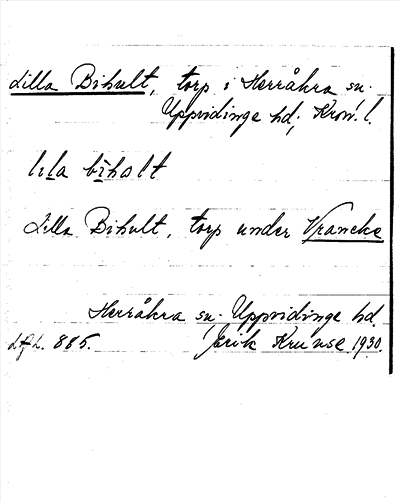 Lilla Bihult, torp i Herråkra sn.
Uppvidinge hd, Kron. l.
lıla bihalt
Lilla Bihult, torp under Vrancke
Herråkra sn. Uppvidinge hd.
885. Erik Kruuse 1930.